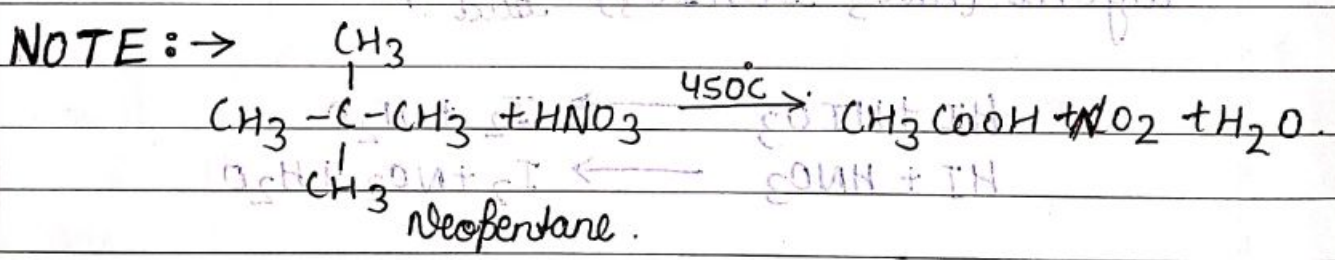 NOTE :→ CH3
CH3 - C - CH3 + HNO3 450°C → CH3COOH + NO2 + H2O.
CH3
Neopentane.